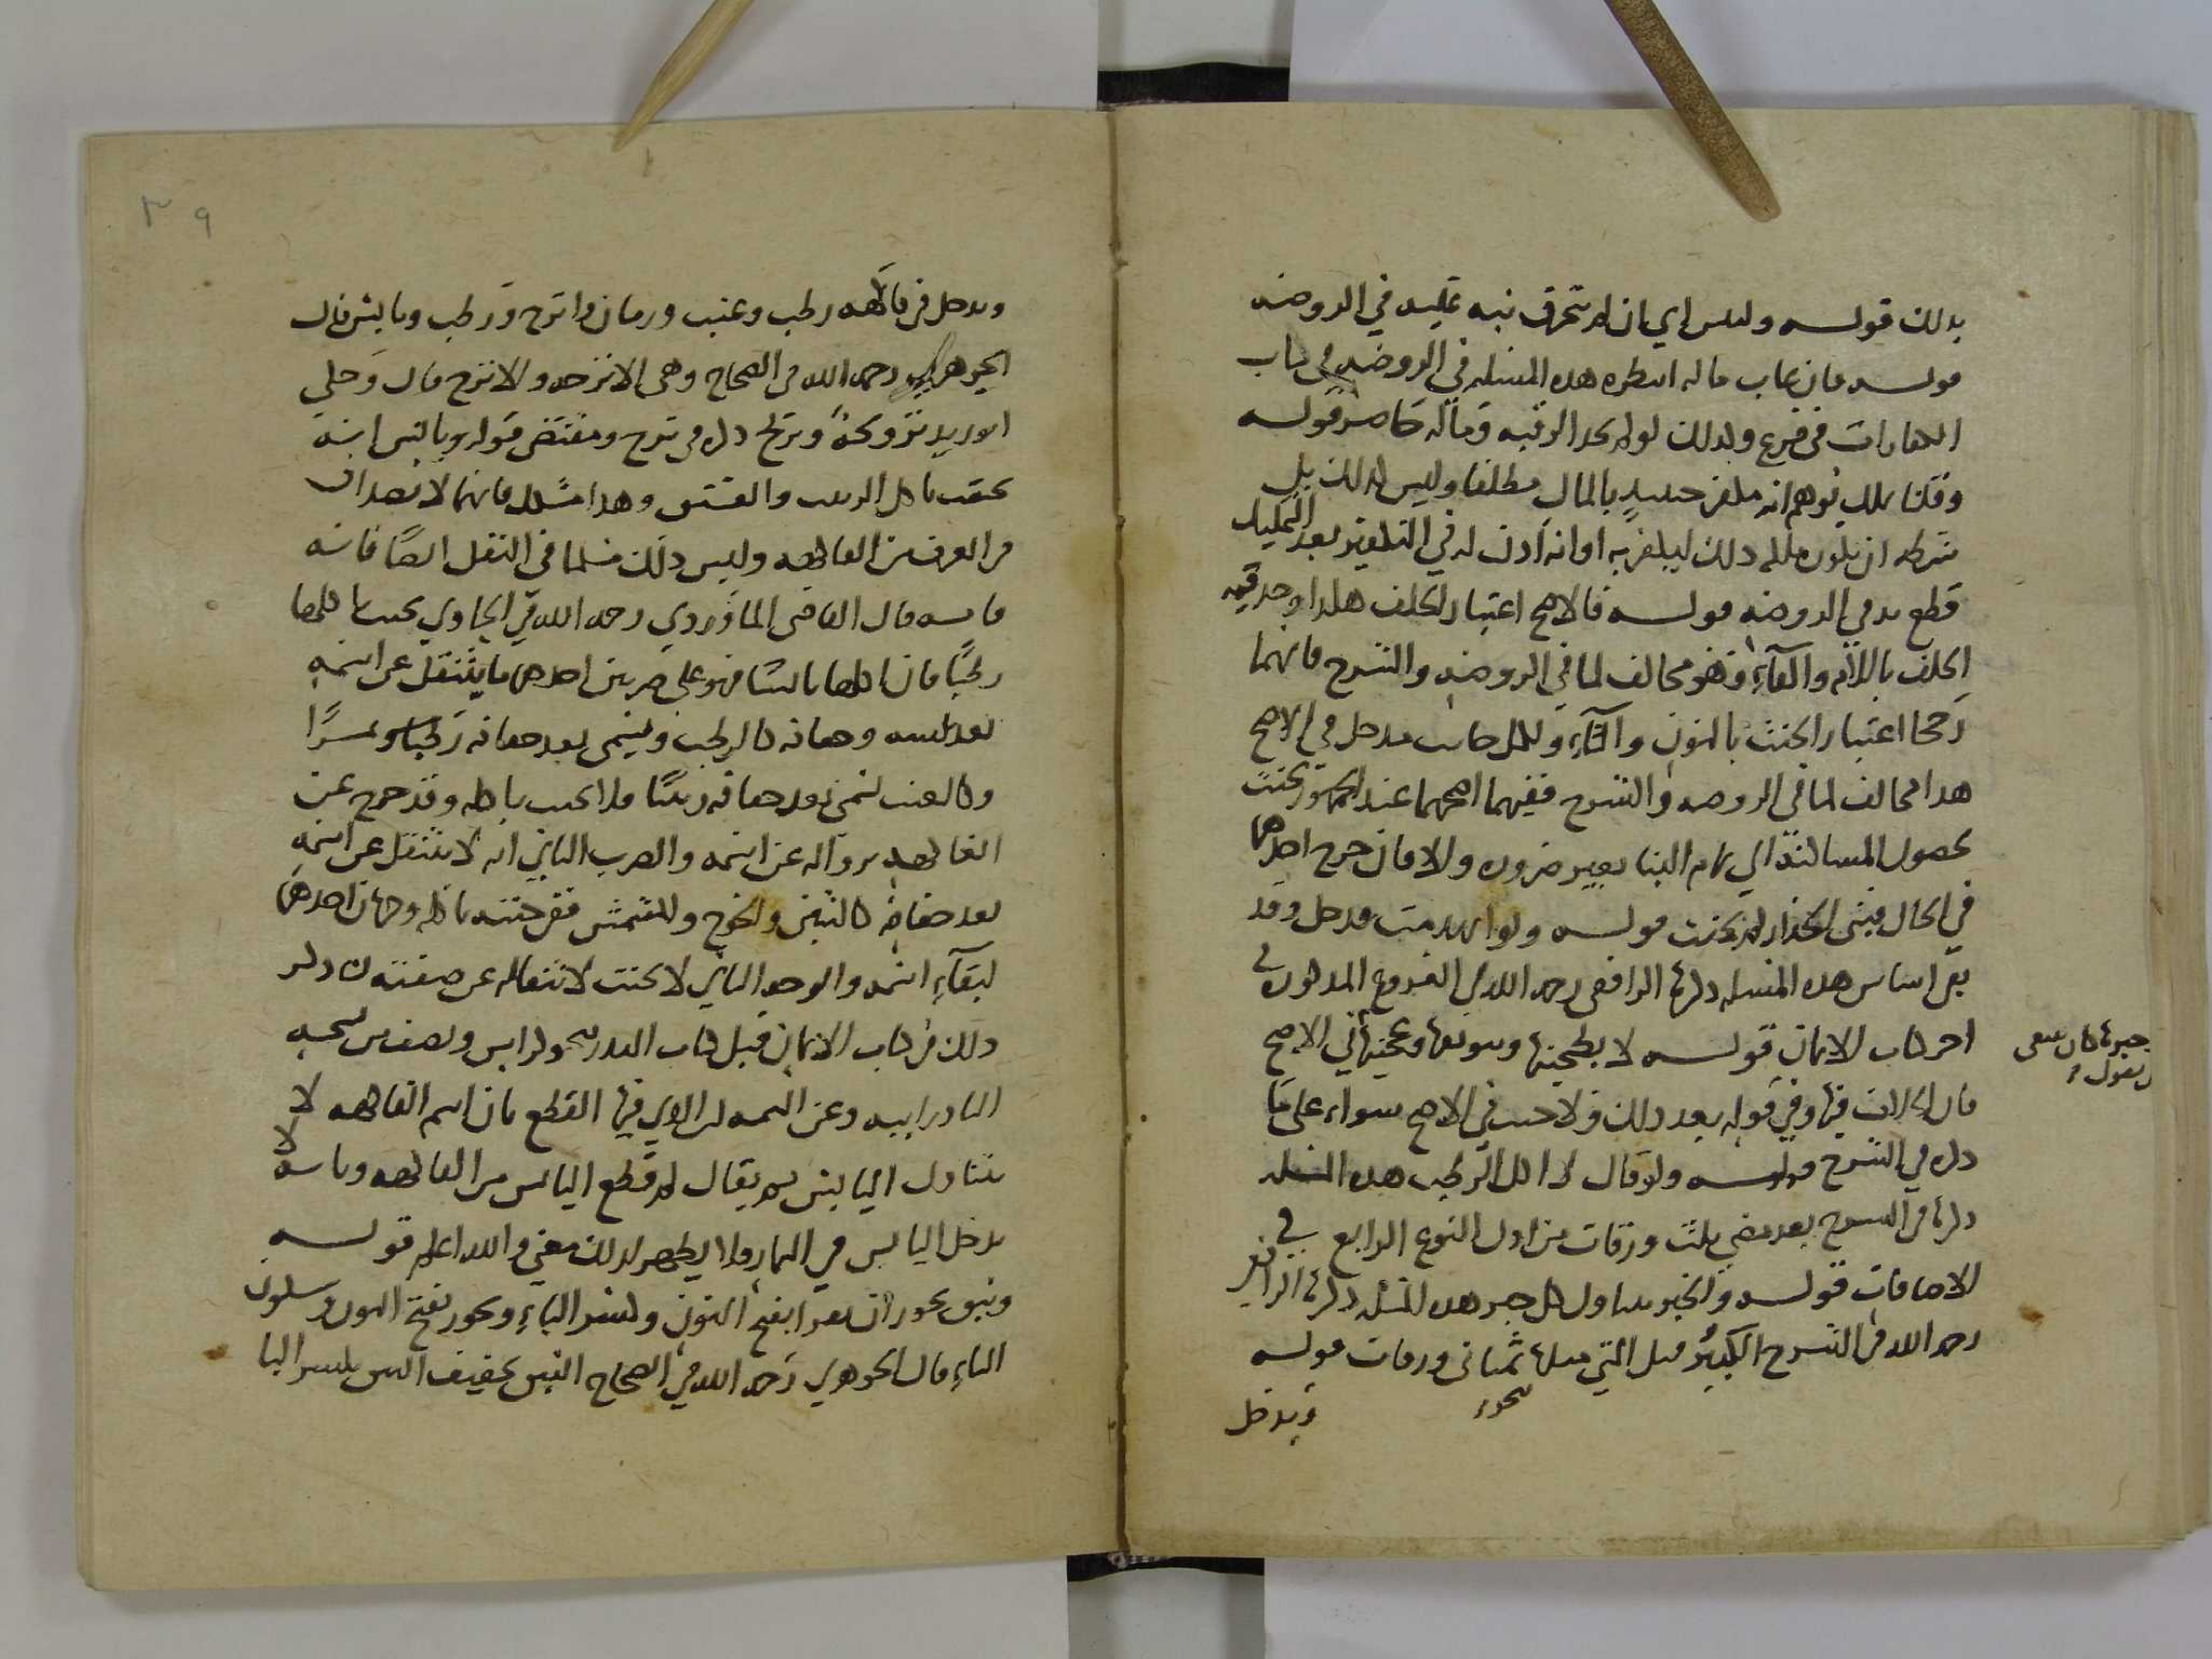 بذلك قوله وليس اي بان لم تتحرق نبه عليه في الروضة
قوله فان غاب ماله انتظره هذه المسئلة في الروضة في باب
الكفارات في فرع وكذلك لو لم يجد الرقبة وماله حاضر قوله
وقلنا يملك يوهم انه يكفر حينئذ بالمال مطلقا وليس كذلك بل
شرطه ان يكون ملكه ذلك ليكفر به او انه اذن له في التكفير بعد التمليك
قطع به في الروضة قوله فالاصح اعتبار الحلف هكذا وجد فيه
الحلف باللام والفاء وهو مخالف لما في الروضة والشرح فانهما
رجحا اعتبار الحنث بالنون والثاء قوله
هذا مخالف لما في الروضة والشرح ففيهما اصحهما عند الجمهور يحنث
بحصول المساكنة الي تمام البنا بغير ضرورة والا فان خرج احدهما
في الحال فبنى الجدار لم يحنث قوله ولو انهدمت فدخل وقد
بقي اساس هذه المسئلة ذكرها الرافعي رحمه الله في الفروع المذكورة في
اخر كتاب الايمان قوله لا بطحينها وسويقها وعجينها في الاصح
خبزها كان ينبغي
ان يقول
فان الخلاف فيها وفي قوله بعد ذلك ولا خبز في الاصح سواء على ما
ذكره في الشرح قوله ولو قال لا اكل الرطب هذه المسئلة
ذكرها في الشرح بعد مضي ثلث ورقات من اول النوع الرابع في
الاضافات قوله والخبز يتناول كل خبز هذه المسئلة ذكرها الرافعي
رحمه الله في الشرح الكبير قبل التي قبلها بثماني ورقات قوله
بنحو
ويدخل
٣٩
ويدخل في فاكهة رطب وعنب ورمان واترج ورطب ويابس قال
الجوهري رحمه الله في الصحاح وهي الاترجة والاترج قال وحكى
ابو زيد ترنجة وترنج ذكره في ترج ومقتضى قوله ويابس انه
يحنث باكل الزبيب والفستق وهذا مشكل فانهما لا يعدان
في العرف من الفاكهة وليس ذلك مسلما في النقل ايضا فانه
قال القاضي الماوردي رحمه الله في الحاوي يحنث باكلها
رطبا فان اكلها يابسا فهو على ضربين احدهما ما ينتقل عن اسمه
بعد يبسه وجفافه كالرطب ويسمى بعد جفافه
وكالعنب يسمى بعد جفافه زبيبا فلا يحنث باكله وقد خرج عن
الفاكهة بزواله عن اسمه والضرب الثاني انه لا ينتقل عن اسمه
بعد جفافه كالتين والخوخ والمشمش ففي حنثه باكله وجهان احدهما
لبقاء اسمه والوجه الثاني لا يحنث لانتقاله عن صفته ذكر
ذلك في كتاب الايمان قبل كتاب النذر بنحو كراس ونصف من نسخة
البادرايية وعن التتمة القطع بان اسم الفاكهة لا
يتناول اليابس ثم يقال لم قطع اليابس من الفاكهة وبانه لا
يدخل اليابس في الثمار ولا يظهر لذلك معنى والله اعلم قوله
ونبق يجوز ان يقرا بفتح النون وكسر الباء ويجوز بفتح النون وسكون
الباء قال الجوهري رحمه الله في الصحاح النبق تخفيف النبق بكسر البا